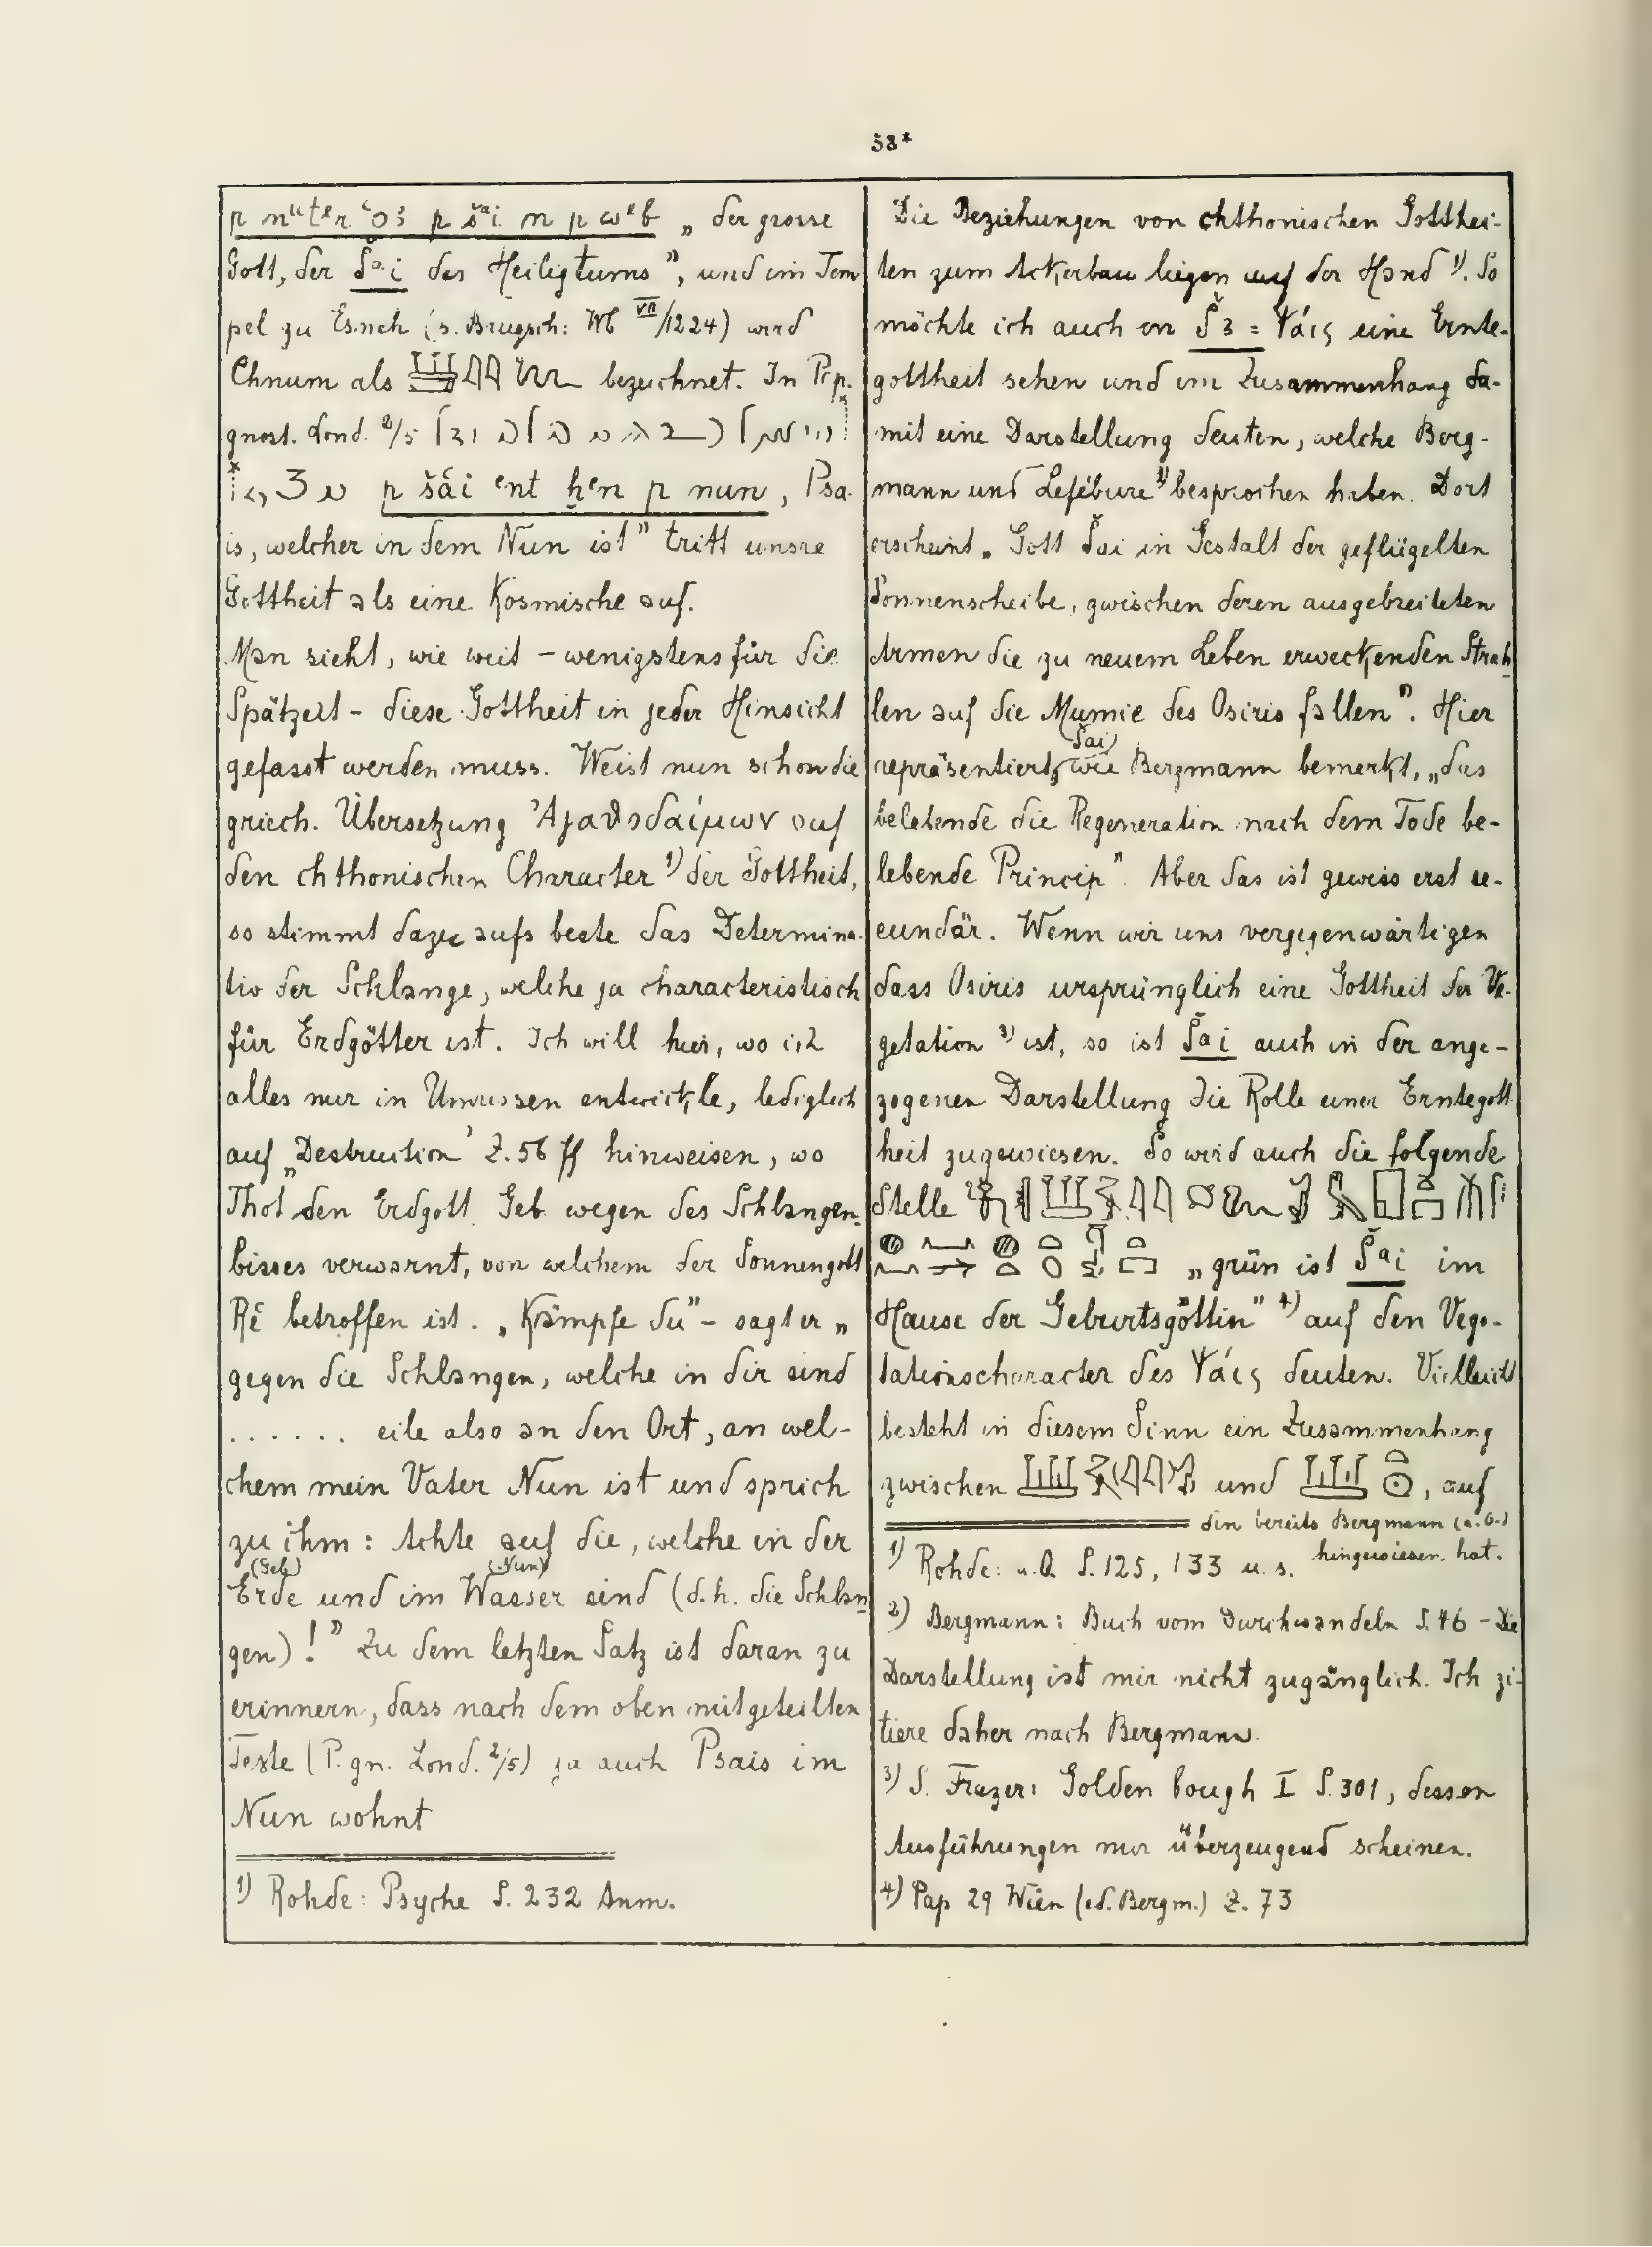 58*
p nuter ʿo3 p šai n p weʿb „der grosse
Gott, der Šai des Heiligtums”, und im Tem
pel zu Esneh (s. Brugsch: Wb VII/1224) wird
Chnum als bezeichnet. In Pap.
gnost. Lond. 2/5
p šái ent ḫen p nun, Psa-
is, welcher in dem Nun ist” tritt unsre
Gottheit als eine Kosmische auf.
Man sieht, wie weit – wenigstens für die
Spätzeit – diese Gottheit in jeder Hinsicht
gefasst werden muss. Weist nun schon die
griech. Übersetzung Ἀγαθοδαίμων auf
den chthonischen Character 1) der Gottheit,
so stimmt dazu aufs beste das Determina-
tiv der Schlange, welche ja characteristisch
für Erdgötter ist. Ich will hier, wo ich
alles nur in Umrissen entwickle, lediglich
auf „Destruction’ Z. 56 ff hinweisen, wo
Thot den Erdgott Geb wegen des Schlangen-
bisses verwarnt, von welchem der Sonnengott
Rē betroffen ist. „Kämpfe du” – sagt er „
gegen die Schlangen, welche in dir sind
...... eile also an den Ort, an wel-
chem mein Vater Nun ist und sprich
zu ihm: Achte auf die, welche in der
(Geb) (Nun)
Erde und im Wasser sind (d.h. die Schlan
gen)!” Zu dem letzten Satz ist daran zu
erinnern, dass nach dem oben mitgeteilten
Texte (P. gn. Lond. 2/5) ja auch Psais im
Nun wohnt
1) Rohde: Psyche S. 232 Anm.
Die Beziehungen von chthonischen Gotthei-
ten zum Ackerbau liegen auf der Hand 1). So
möchte ich auch in Š3 = Ψάις eine Ernte-
gottheit sehen und im Zusammenhang da-
mit eine Darstellung deuten, welche Berg-
mann und Lefébure 2) besprochen haben. Dort
erscheint „Gott Šai in Gestalt der geflügelten
Sonnenscheibe, zwischen deren ausgebreiteten
Armen die zu neuem Leben erweckenden Strah
len auf die Mumie des Osiris fallen”. Hier
(Šai)
repräsentiert, wie Bergmann bemerkt, „das
belebende die Regeneration nach dem Tode be-
lebende Princip”. Aber das ist gewiss erst se-
cundär. Wenn wir uns vergegenwärtigen
dass Osiris ursprünglich eine Gottheit der Ve-
getation 3) ist, so ist Šai auch in der ange-
zogenen Darstellung die Rolle einer Erntegott
heit zugewiesen. So wird auch die folgende
Stelle
„grün ist Šai im
Hause der Geburtsgöttin” 4) auf den Vege-
tationscharacter des Ψάις deuten. Vielleicht
besteht in diesem Sinn ein Zusammenhang
zwischen und , auf
den bereits Bergmann (a.O.)
hingewiesen hat.
1) Rohde: a.O. S. 125, 133 u. s.
2) Bergmann: Buch vom Durchwandeln S. 46 – Die
Darstellung ist mir nicht zugänglich. Ich zi-
tiere daher nach Bergmann.
3) S. Frazer: Golden bough I S. 301, dessen
Ausführungen mir überzeugend scheinen.
4) Pap 29 Wien (ed. Bergm.) Z. 73